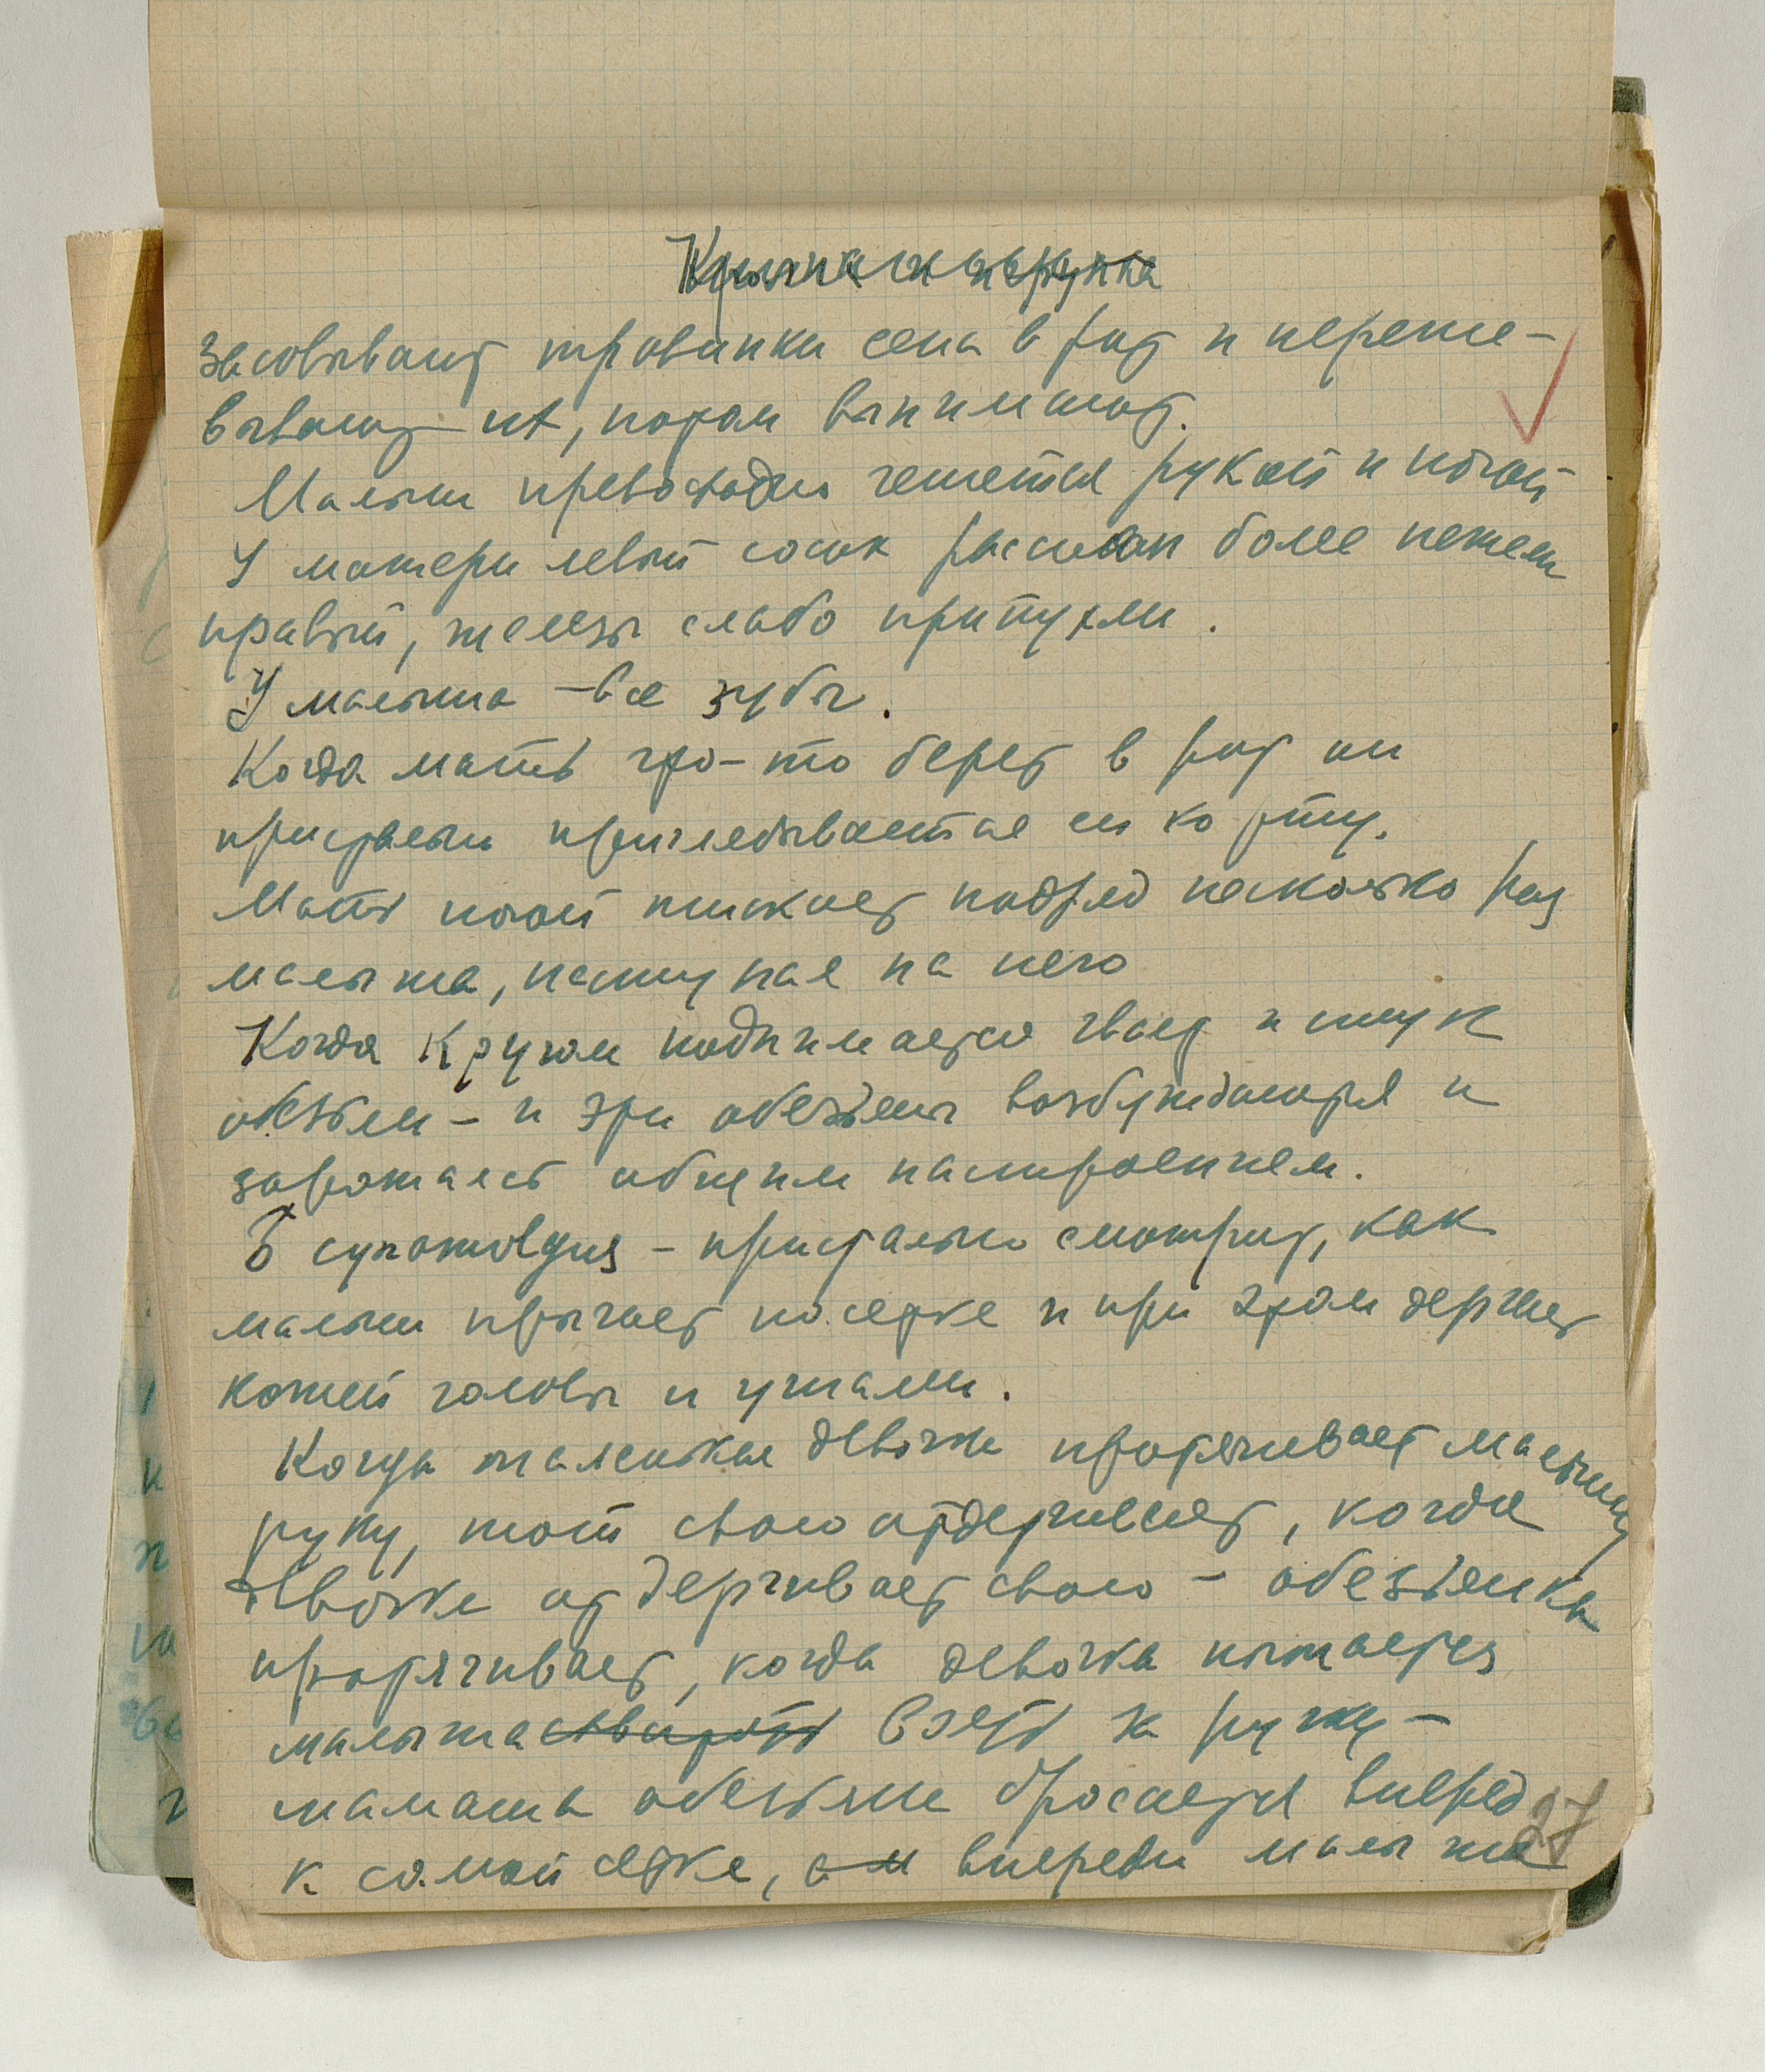 засовывают травинки сена в рот и переже-
вывают их, потом вынимают.
Малыш превосходно чешется рукой и ногой
У матери левый сосок рассосан более нежели
правый, железы слабо припухли.
У малыша – все зубы.
Когда мать что-то берет в рот он
пристально приглядывается ей ко рту.
Мать ногой тискает подряд несколько раз
малыша, наступая на него
Когда кругом поднимается гвалт и стук
обезьян – и эти обезьяны возбуждаются и
заражаясь общим настроением.
♂ cynomolgus – пристально смотрит, как
малыш прыгает по сетке и при этом дергает
кожей головы и ушами.
Когда маленькая девочка протягивает малышу
руку, тот свою отдергивает, когда
девочка отдергивает свою – обезьянка
протягивает, когда девочка пытается
малыша взять за ручку –
мамаша обезьяна бросается вперед
к самой сетке, впереди малыша
27